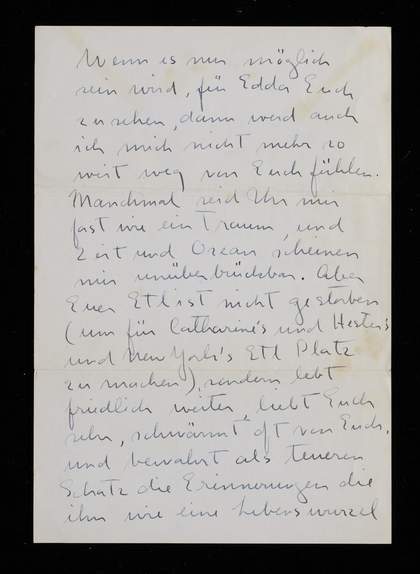 Wenn es nur möglich
sein wird, für Edda Euch
zu sehen, dann werd auch
ich mich nicht mehr so
weit weg von Euch fühlen.
Manchmal seid Ihr mir
fast wie ein Traum, und
Zeit und Ozean scheinen
mir unüberbrückbar. Aber
Euer Etl ist nicht gestorben
(um für Catharine's und Hester's
und New York's Etl Platz
zu machen), sondern lebt
friedlich weiter, liebt Euch
sehr, schwärmt oft von Euch,
und bewahrt als teueren
Schatz die Erinnerungen die
ihm wie eine Lebenswurzel